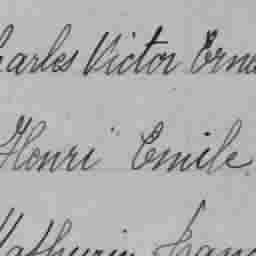 Charles Victor Erne
Henri Emile
Mathurin Franc